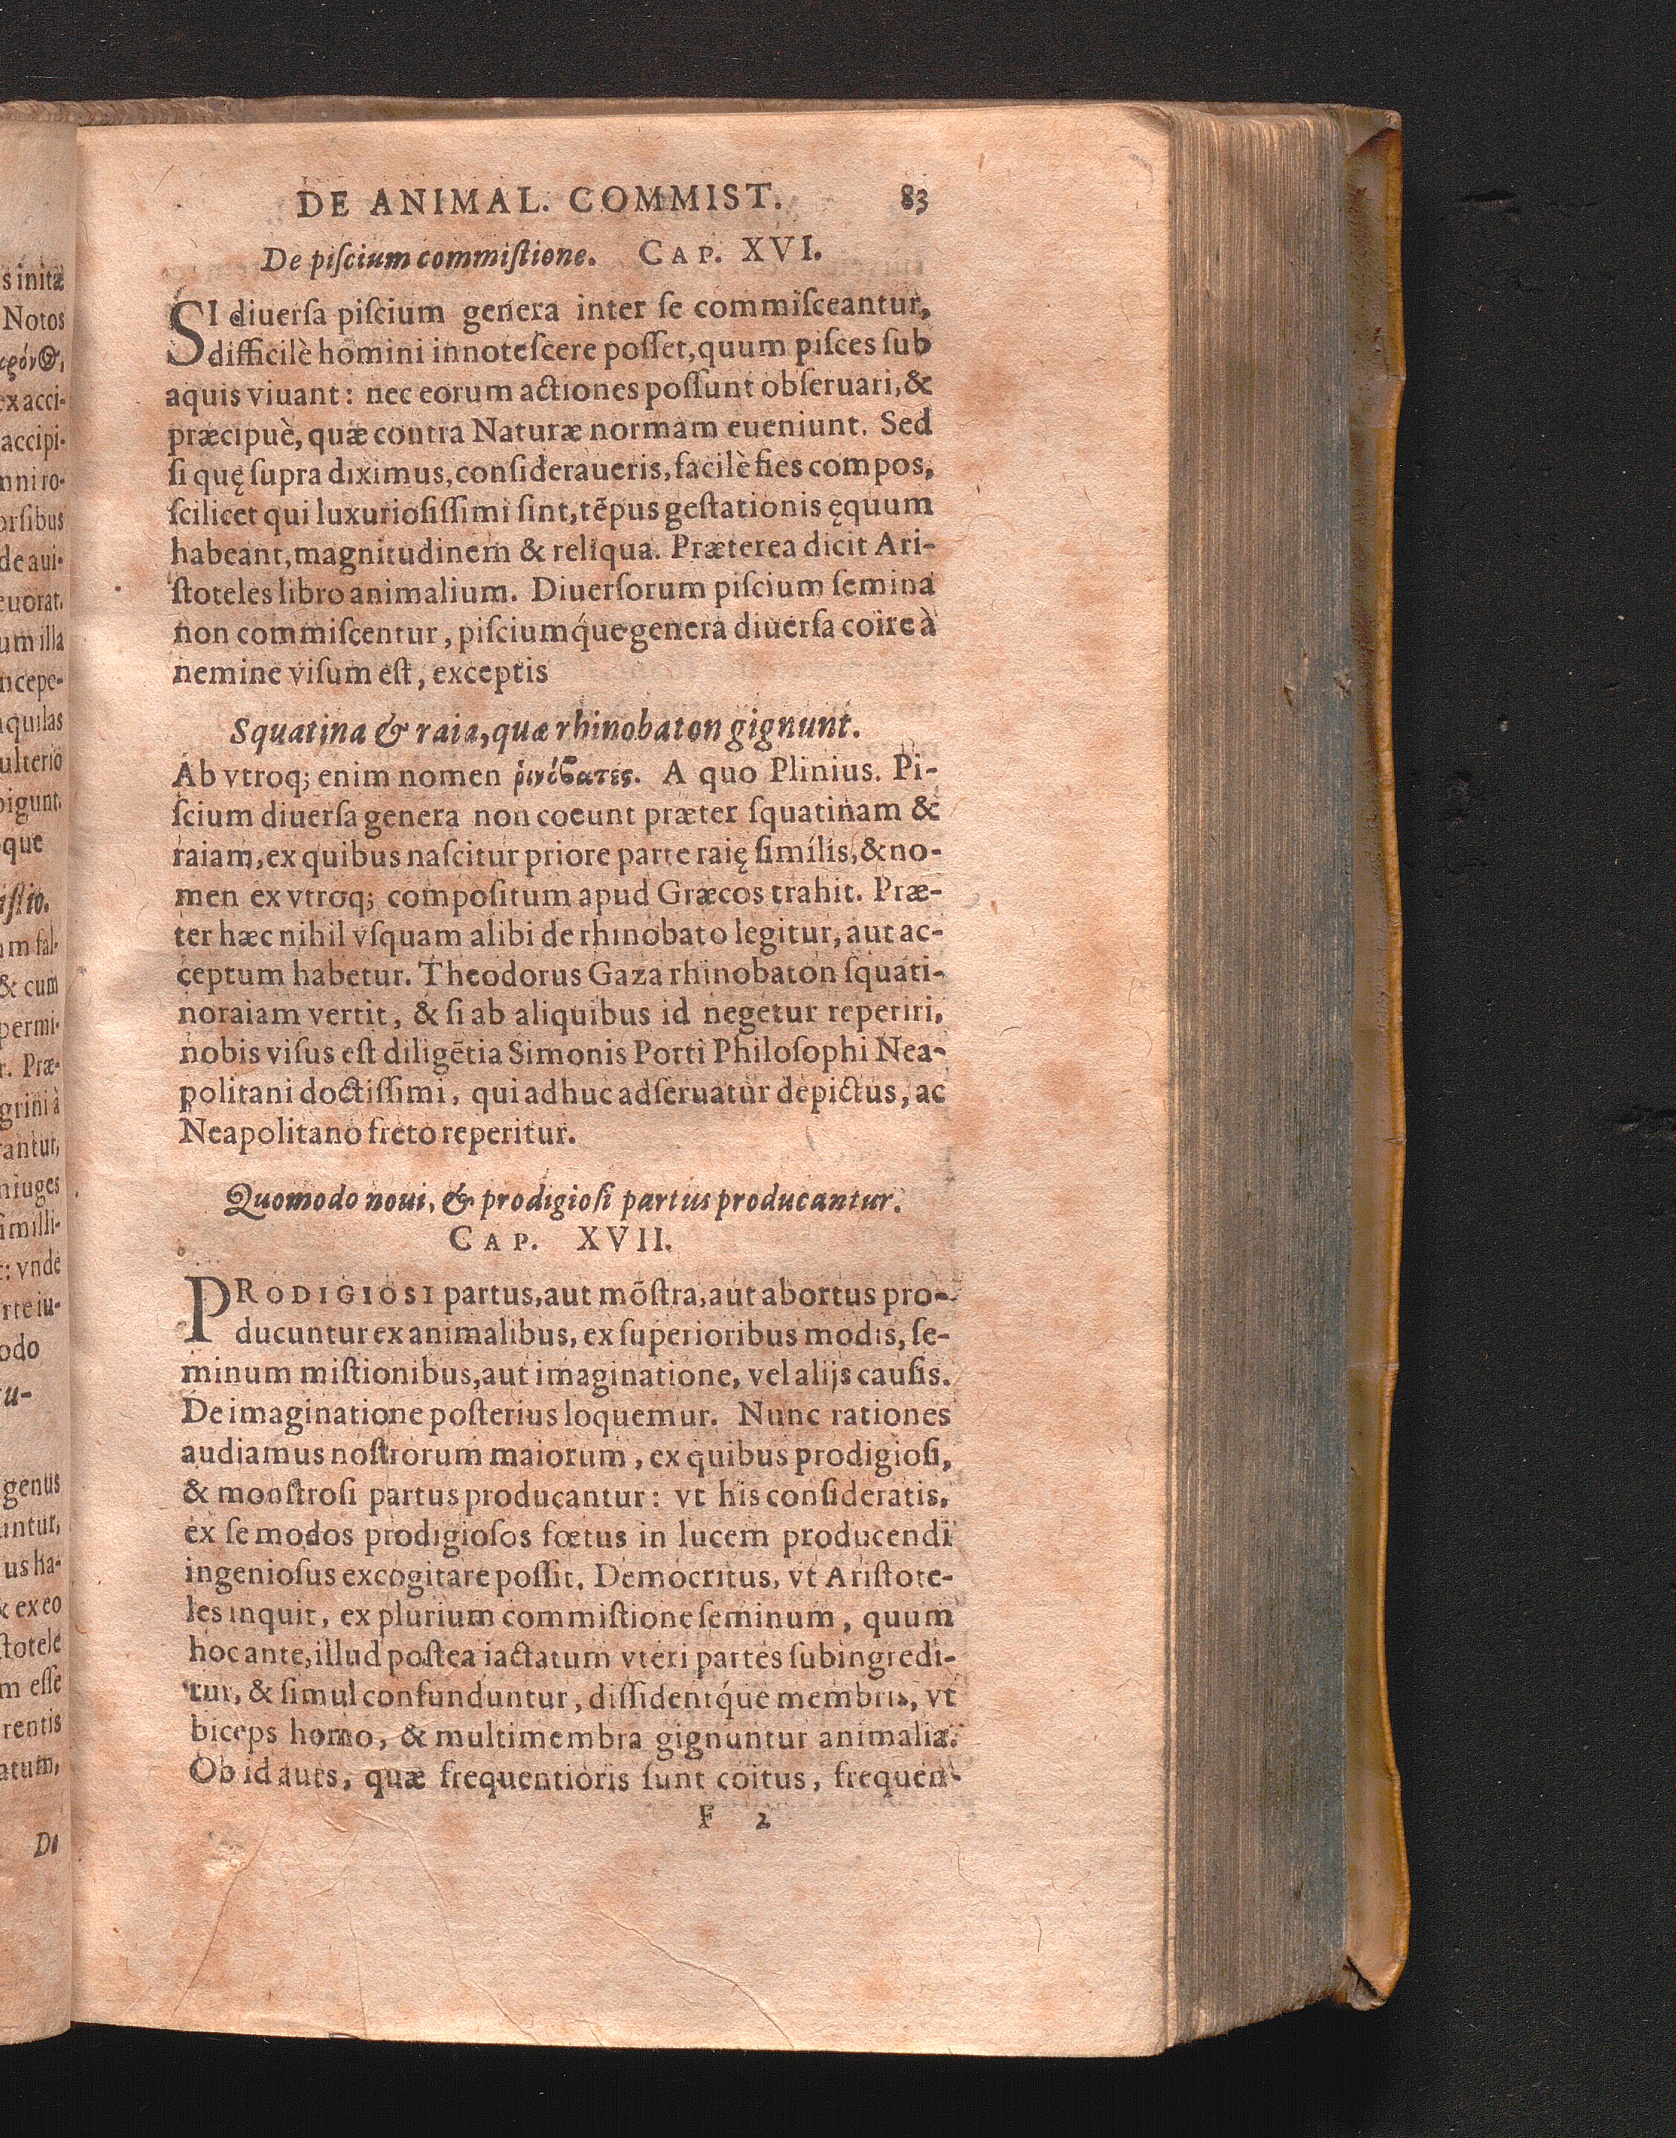 DE ANIMAL. COMMIST. 83
De piſcium commiſtione. CAP. XVI.
SI diuerſa piſcium genera inter ſe commiſceantur,
difficilè homini innoteſcere poſſet, quum piſces ſub
aquis viuant: nec eorum actiones poſſunt obſeruari, &
præcipuè, quæ contra Naturæ normam eueniunt. Sed
ſi quę ſupra diximus, conſideraueris, facilè fies compos,
ſcilicet qui luxurioſiſſimi ſint, tẽpus geſtationis ęquum
habeant, magnitudinem & reliqua. Præterea dicit Ari-
ſtoteles libro animalium. Diuerſorum piſcium ſemina
non commiſcentur, piſciumq́ue genera diuerſa coire à
nemine viſum eſt, exceptis
Squatina & raia, quæ rhinobaton gignunt.
Ab vtroq; enim nomen ῥινόβατες. A quo Plinius. Pi-
ſcium diuerſa genera non coeunt præter ſquatinam &
raiam, ex quibus naſcitur priore parte raię ſimilis, & no-
men ex vtroq; compoſitum apud Græcos trahit. Præ-
ter hæc nihil vſquam alibi de rhinobato legitur, aut ac-
ceptum habetur. Theodorus Gaza rhinobaton ſquati-
noraiam vertit, & ſi ab aliquibus id negetur reperiri,
nobis viſus eſt diligẽtia Simonis Porti Philoſophi Nea-
politani doctiſſimi, qui adhuc adſeruatur depictus, ac
Neapolitano freto reperitur.
Quomodo noui, & prodigioſi partus producantur.
CAP. XVII.
PRODIGIOSI partus, aut mõſtra, aut abortus pro-
ducuntur ex animalibus, ex ſuperioribus modis, ſe-
minum miſtionibus, aut imaginatione, vel alijs cauſis.
De imaginatione poſterius loquemur. Nunc rationes
audiamus noſtrorum maiorum, ex quibus prodigioſi,
& monſtroſi partus producantur: vt his conſideratis,
ex ſe modos prodigioſos fœtus in lucem producendi
ingenioſus excogitare poſſit. Democritus, vt Ariſtote-
les inquit, ex plurium commiſtione ſeminum, quum
hoc ante, illud poſtea iactatum vteri partes ſubingredi-
tur, & ſimul confunduntur, diſſidentq́ue membris, vt
biceps homo, & multimembra gignuntur animalia.
Ob id aues, quæ frequentioris ſunt coitus, frequen-
F 2
s initæ
Notos
ex acci-
accipi-
orſibus
de aui-
um illa
quilas
ulterio
que
& cum
permi-
r. Præ-
grini à
rantur,
niuges
imilli-
: vnde
rte iu-
odo
genus
untur,
us ha-
& ex eo
ſtotele
m eſſe
rentis
atum,
De